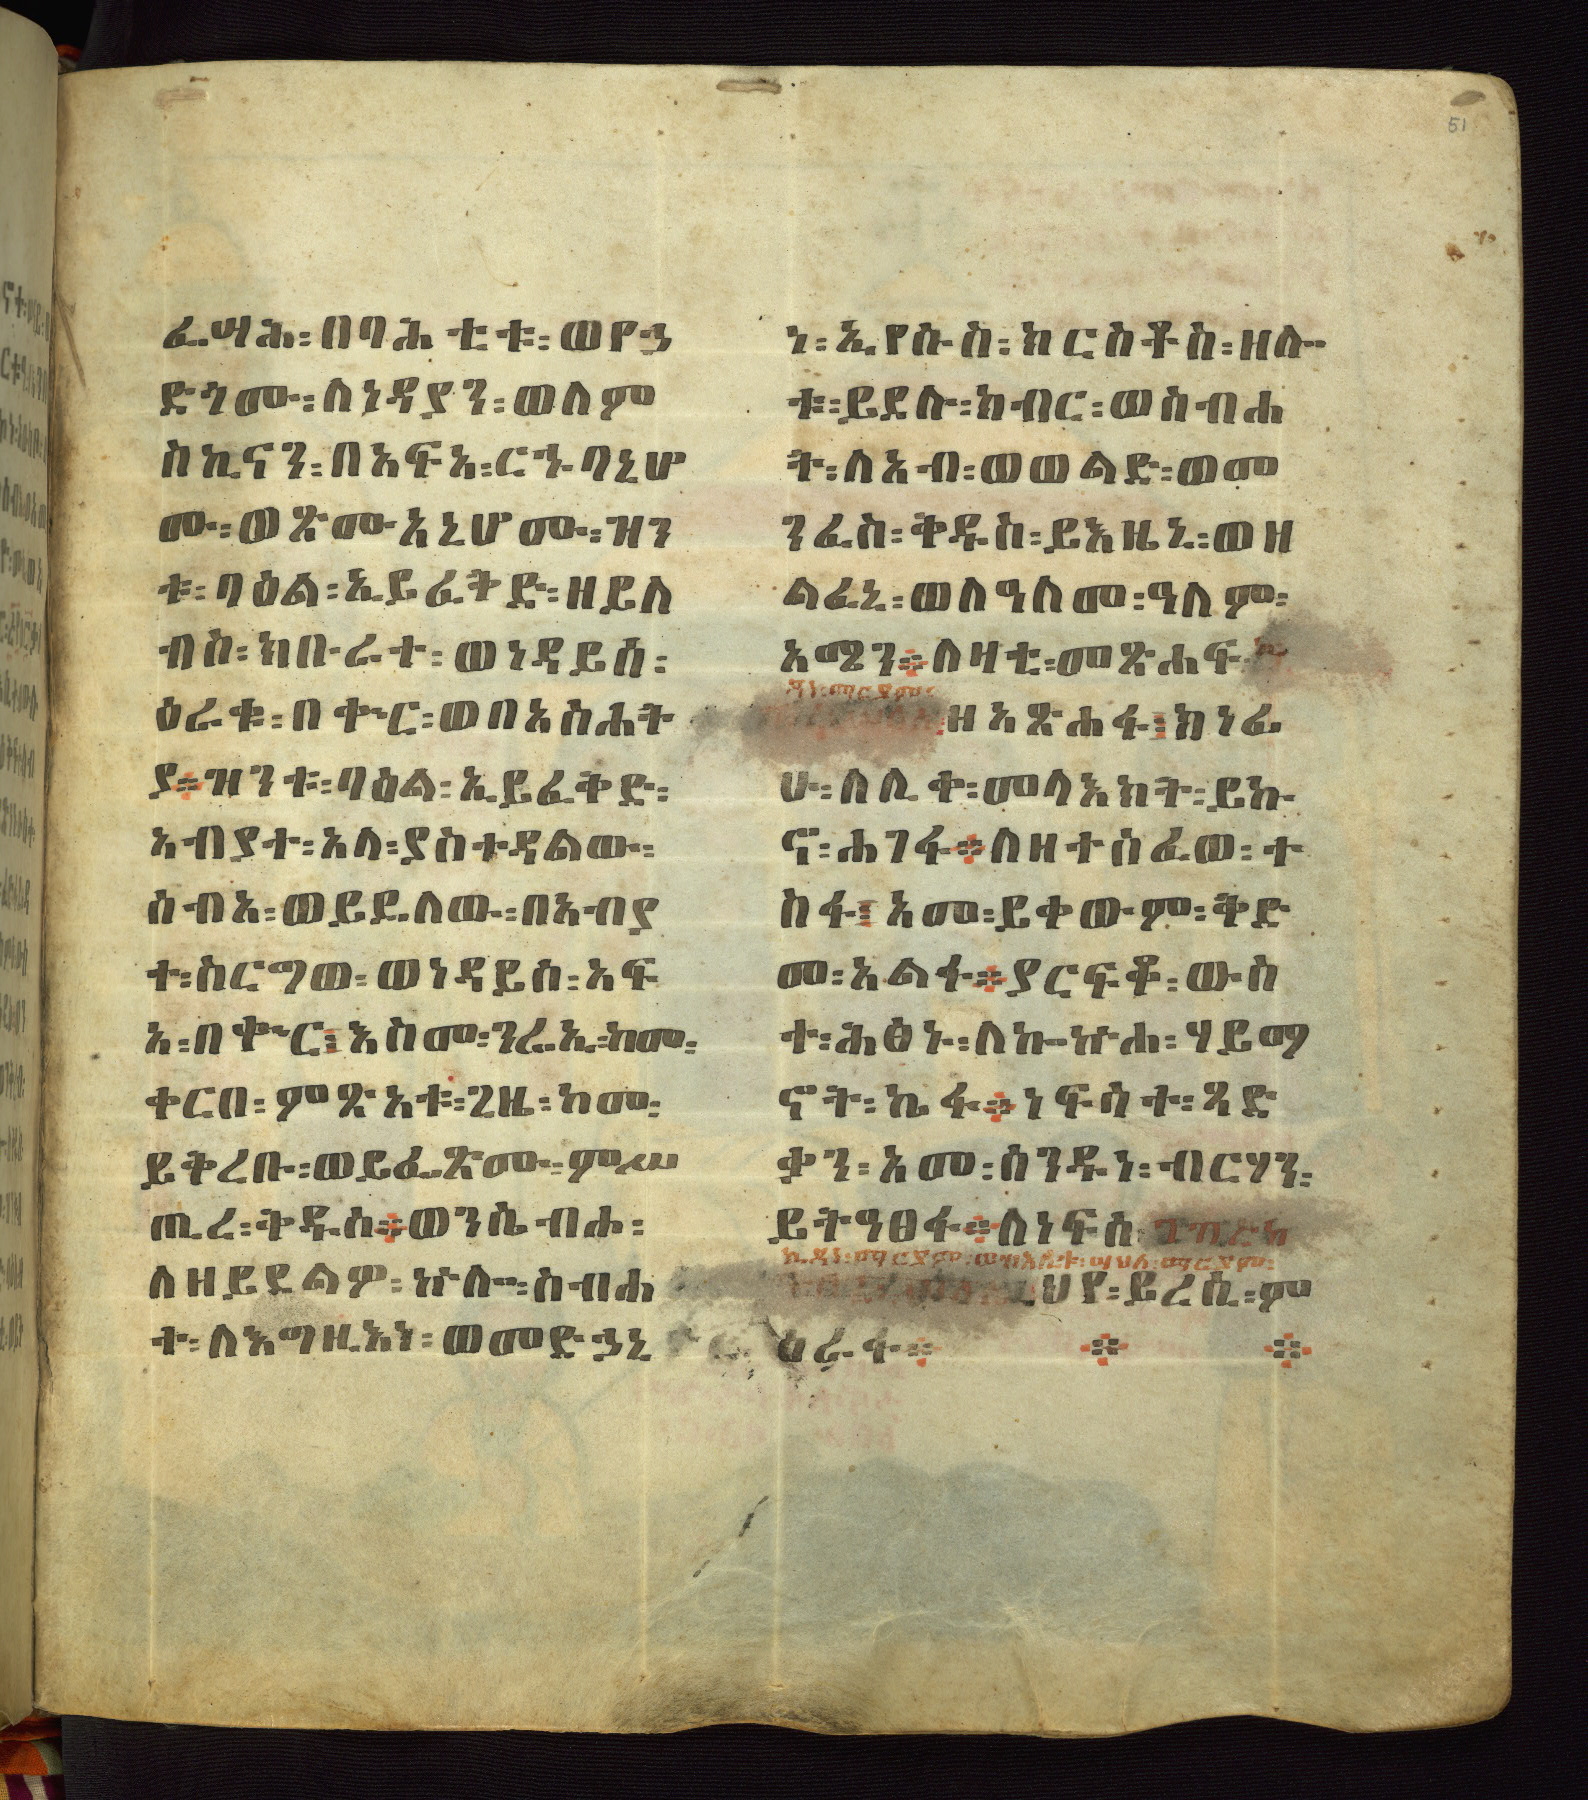 51
ፈሣሕ፡በባሕቲቱ፡ወየኃ
ድጎሙ፡ለነዳያን፡ወለም
ስኪናን፡በአፍአ፡ርኁባኒሆ
ሙ፡ወጽሙአኒሆሙ፡ዝን
ቱ፡ባዕል፡ኢይፈትድ፡ዘይለ
ብስ፡ክቡራተ፡ወነዳይሰ፡
ዕራቁ፡በቍር፡ወበአስሐት
ያ፡፡ዝንቱ፡ባዕል፡ኢይፈቅድ፡
አብያተ፡እለ፡ያስተዳልው፡
ሰብአ፡ወይደለው፡በአብያ
ተ፡ስርግው፡ወነዳይሰ፡አፍ
አ፡በቍር፡እስመ፡ንሬኢ፡ከመ፡
ቀርበ፡ምጽአቱ፡ጊዜ፡ከመ፡
ይቅረቡ፡ወይፈጽሙ፡ምሥ
ጢረ፡ቅዱስ፡፡ወንሴብሕ፡
ለዘይደልዎ፡ኵሉ፡ስብሐ
ት፡ለእግዚእነ፡ወመድኃኒ
ነ፡ኢየሱስ፡ክርስቶስ፡ዘሎ
ቱ፡ይደሉ፡ክብር፡ወስብሐ
ት፡ለአብ፡ወወልድ፡ወመ
ንፈስ፡ቅዱስ፡ይእዜኒ፡ወዘ
ልፈኒ፡ወለዓለመ፡ዓለም፡
አሜን፡፡ለዛቲ፡መጽሐፍ
ማርያም፡
ዘአጽሐፋ፡ክነፊ
ሁ፡ለሊቀ፡መላእክት፡ይኩ
ኖ፡ሐገፋ፡፡ለዘተሰፈወ፡ተ
ስፋ፡አመ፡ይቀውም፡ቅድ
መ፡አልፋ፡፡ያርፍቆ፡ውስ
ተ፡ሕፅኑ፡ለኰኵሐ፡ሃይማ
ኖት፡ኬፋ፡፡ነፍሳተ፡ጻድ
ቃን፡አመ፡ሰንዱነ፡ብርሃን፡
ይትዓፀፋ፡፡ለነፍሰ፡
ኪዳነ፡ማርያም፡ወብእሲቱ፡ሣህለ፡ማርያም፡
ህየ፡ይረሲ፡ም
ዕራፋ፡፡